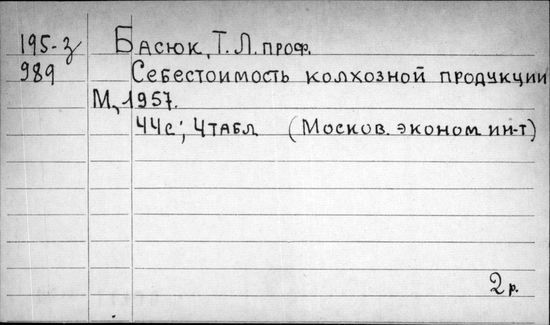 195-з Басюк, Т. Л. проф.
989 Себестоимость колхозной продукции
М, 1957.
44с; 4табл (Москов. эконом ин-т)
2 р.